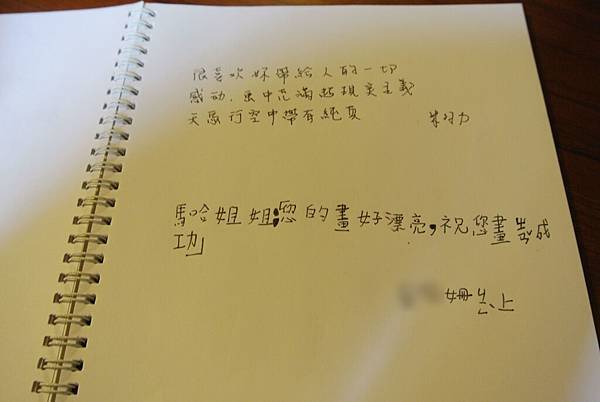 很喜欢妳帶給人的一切
感动.画中充滿超現实主義
天馬行空中帶有純真
馬哈姐姐:您的畫好漂亮,祝您畫裝成
功」
姍 上